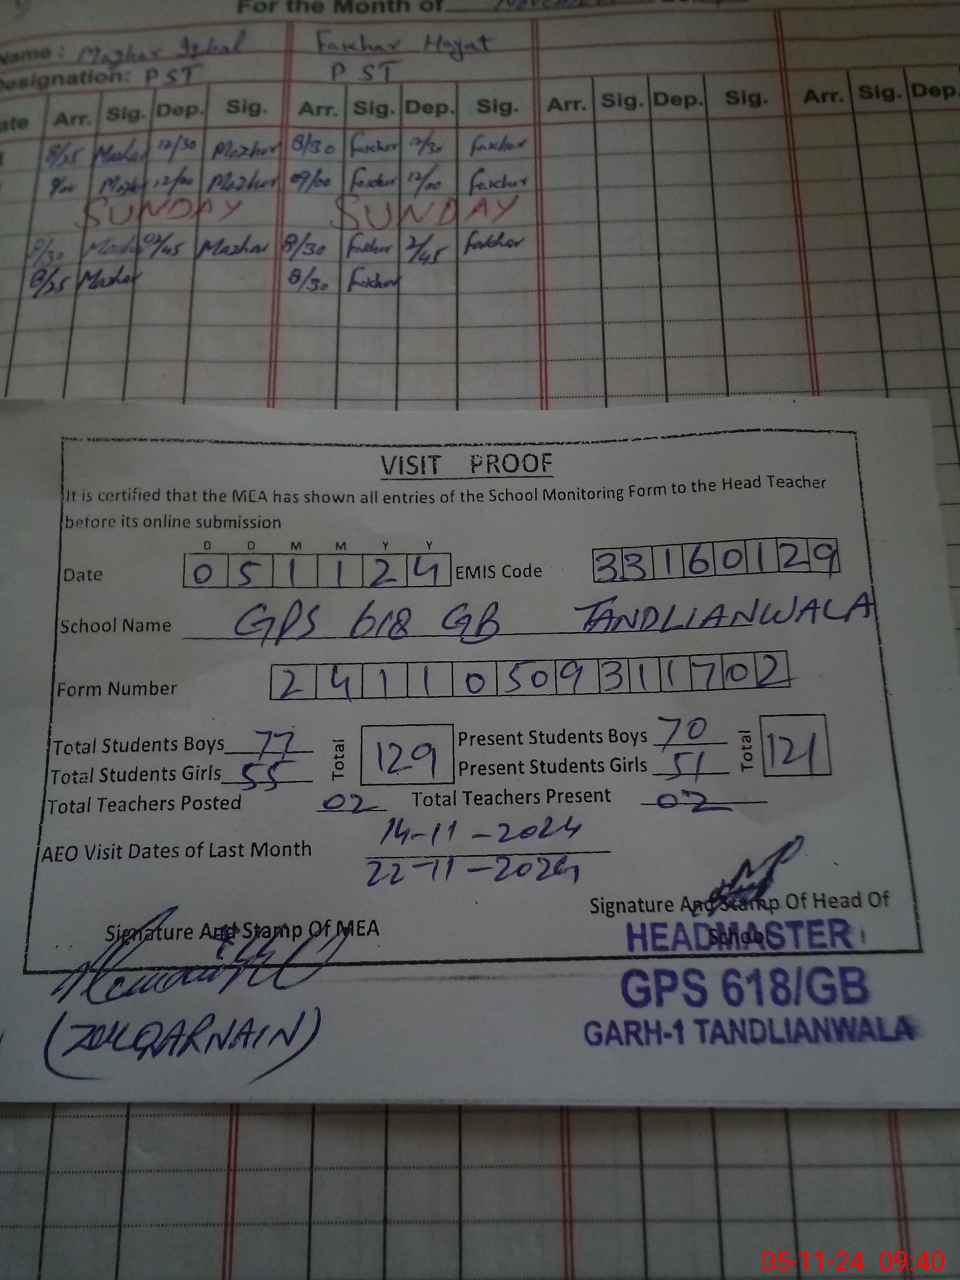 For the Month of November
Name: Mazhar Iqbal Fakhar Hayat
Designation: PST PST
Date Arr. Sig. Dep. Sig. Arr. Sig. Dep. Sig. Arr. Sig. Dep. Sig. Arr. Sig. Dep.
8/25 Mazhar 12/30 Mazhar 8/30 Fakhar 12/30 Fakhar
9/00 Mazhar 12/00 Mazhar 09/00 Fakhar 12/00 Fakhar
SUNDAY SUNDAY
8/30 Mazhar 02/45 Mazhar 8/30 Fakhar 2/45 Fakhar
8/25 Mazhar 8/30 Fakhar
VISIT PROOF
It is certified that the MEA has shown all entries of the School Monitoring Form to the Head Teacher
before its online submission
D D M M Y Y
Date 051124 EMIS Code 33160129
School Name GPS 618 GB TANDLIANWALA
Form Number 24110509311702
Total Students Boys 77 Total 129 Present Students Boys 70 Total 121
Total Students Girls 55 Present Students Girls 51
Total Teachers Posted 02 Total Teachers Present 02
AEO Visit Dates of Last Month 14-11-2024
22-11-2024
Signature And Stamp Of MEA Signature And Stamp Of Head Of
School
HEADMASTER
GPS 618/GB
GARH-1 TANDLIANWALA
(ZULQARNAIN)
05-11-24 09:40